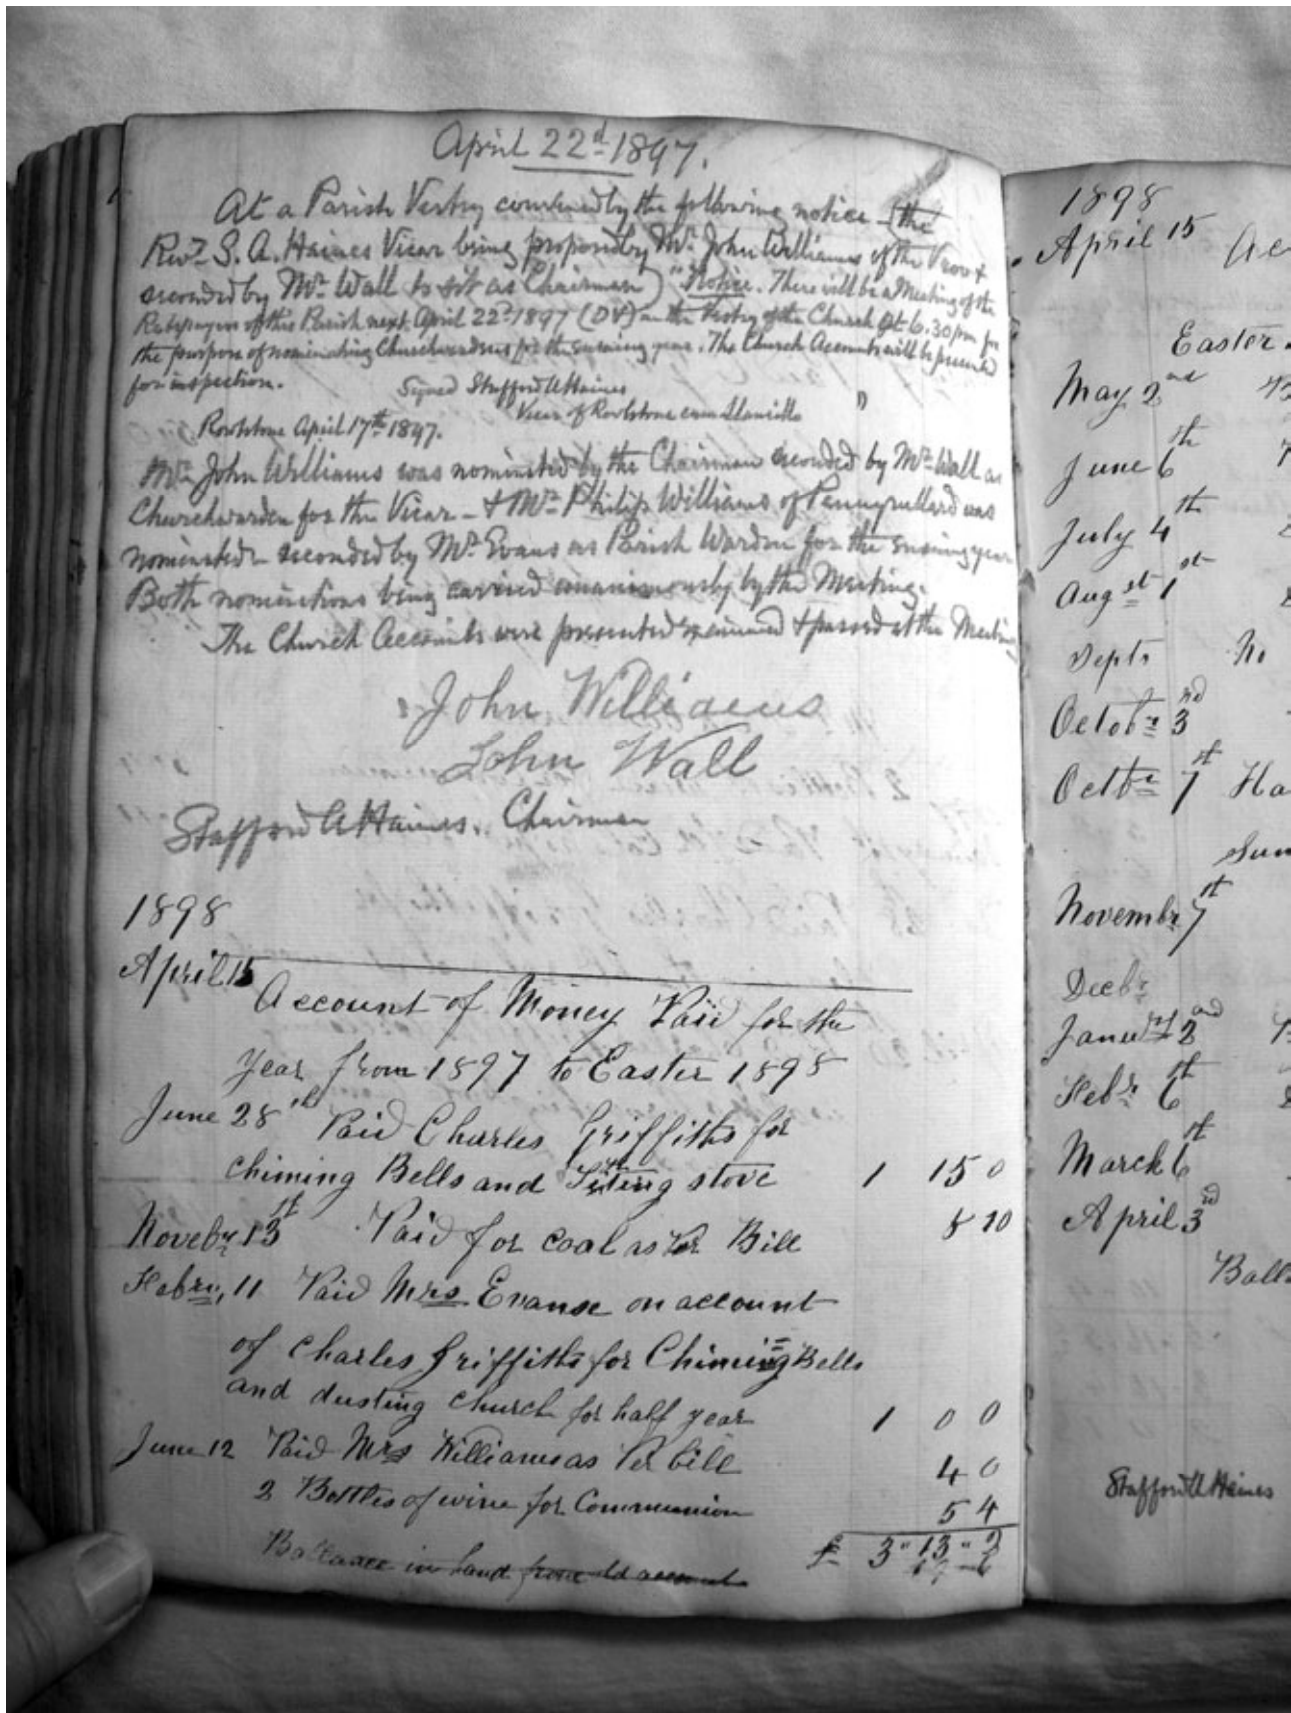 April 22d 1897.
At a Parish Vestry convened by the following notice - (the
Revd S. A. Haines Vicar being proposed by Mr John Williams of the &
seconded by Mr Wall to sit as Chairman) "Notice. There will be a Meeting of the
Ratepayers of this Parish next April 22d 1897 (DV) in the Vestry of the Church at 6.30 pm for
the purpose of nominating Churchwardens for the ensuing year. The Church Accounts will be presented
for inspection.
Signed Stafford A Haines
Vicar of Rowlstone cum Llancillo "
Rowlstone April 17th 1897.
Mr John Williams was nominated by the Chairman seconded by Mr Wall as
Churchwarden for the Vicar - & Mr Philip Williams of was
nominated seconded by Mr Evans as Parish Warden for the ensuing year
Both nominations being carried unanimously by the Meeting.
The Church Accounts were presented examined & passed at the Meeting
John Williams
John Wall
Stafford A Haines. Chairman
1898
April 15
Account of Money Paid for the
Year from 1897 to Easter 1898
June 28th Paid Charles Griffiths for
Chiming Bells and stove 1 15 0
Noveby 13st Paid for coal as Per Bill 8 10
Febry, 11 Paid Mrs Evanse on account
of Charles Griffiths for Chiming Bells
and dusting Church for half year 1 0 0
June 12 Paid Mrs Williams as Per bill 4 0
2 Bottles of wine for Communion 5 4
£ 3 " 13 " 2
Ballance in hand from old account
1898
April 15 Ac
Easter
May 2nd
June 6th
July 4th
Augst 1st
Septr No
Octobr 3rd
Octbr 7st Ha
Sun
Novembr 7st
Decbr
2nd
Febr 6st
March 6st
April 3rd
Ball
Stafford A Haines